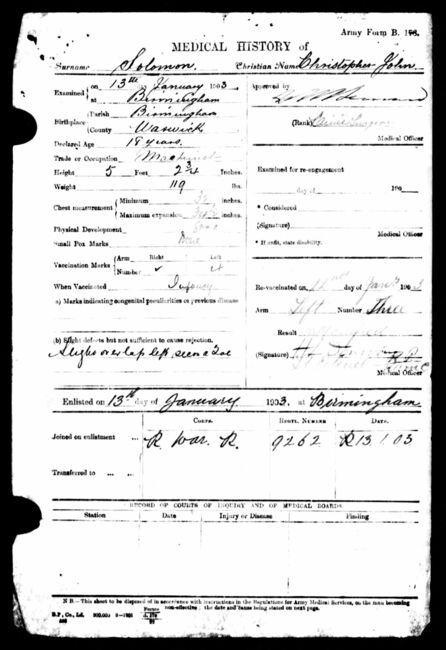 Army Form B. 178.
MEDICAL HISTORY of
Surname Solomon. Christian Name Christopher John.
Examined on 13th January 1903.
at Birmingham
Birthplace Parish Birmingham
County Warwick
Declared Age 18 years.
Trade or Occupation Machinist
Height 5 Feet 2 3/4 inches.
Weight 119 lbs.
Chest measurement Minimum inches.
Maximum expansion inches.
Physical Development Good
Small Pox Marks None
Vaccination Marks Arm Right Left
Number
When Vaccinated Infancy
a) Marks indicating congenital peculiarities or previous disease
(b) Slight defects but not sufficient to cause rejection.
Slight overlap left, second toe
Approved by
(Rank)
Medical Officer
Examined for re-engagement
day of 190
* Considered
(Signature)
Medical Officer
* If unfit, state disability.
Re-vaccinated on day of Jany 1903
Arm Left Number Three
Result
(Signature)
Medical Officer
Enlisted on 13th day of January 1903. at Birmingham
Corps. Regtl. Number Date.
Joined on enlistment R. War. R. 9262 13.1.03
Transferred to
RECORD OF COURTS OF INQUIRY AND OF MEDICAL BOARDS.
Station Date Injury or Disease Finding
N.B.—This sheet to be disposed of in accordance with instructions in the Regulations for Army Medical Services, on the man becoming
non-effective; the date and cause being stated on next page.